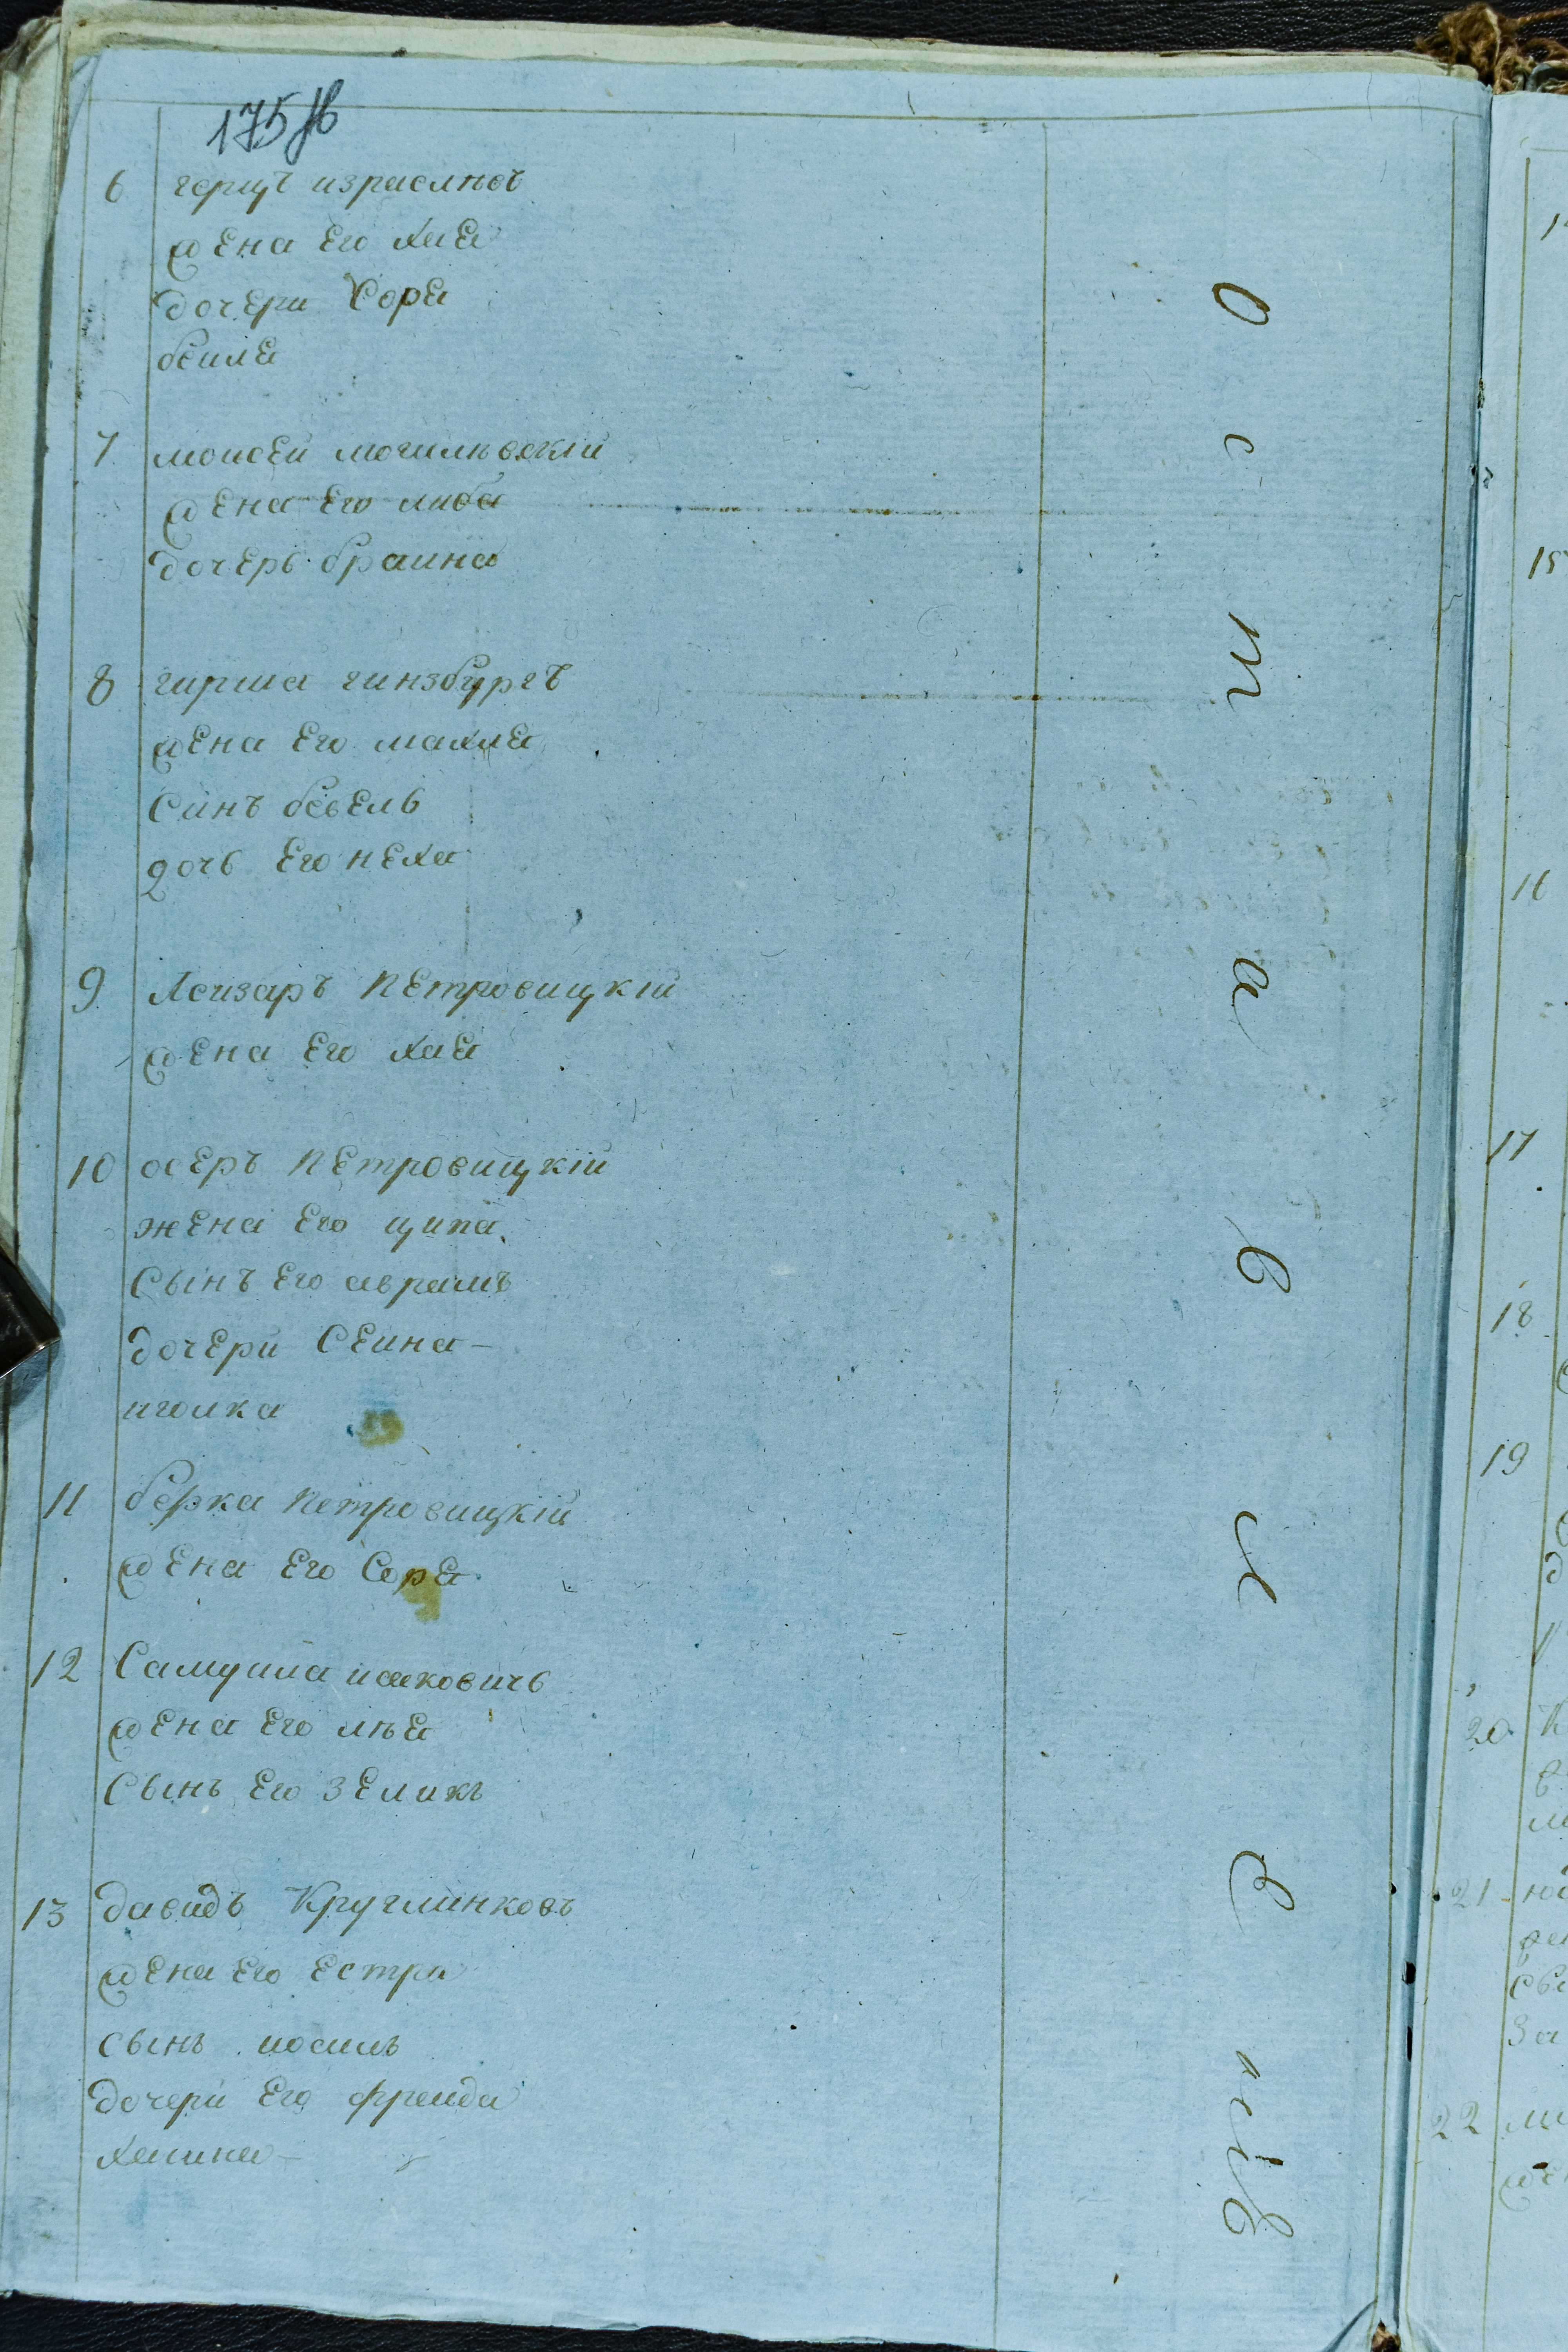 175 об
6 герцъ израелись
жена Его хаЕ
дочЕри СорЕ
беилЕ
7 моисЕй могилевскій
жЕна Его либа
дочЕрь браина
8 гирша гинзбургъ
жЕна Его махлЕ
Синъ бевЕль
дочь Его нЕха
9 Леизаръ ПЕтровицкій
жЕна Его хаЕ
10 осЕръ ПЕтровицкій
жЕна Его ципа
Сынъ Его аврамъ
дочЕри СЕина
иголка
11 берка Петровицкій
жЕна Его СорЕ
12 Самуила исаковичь
жЕна Его лѣЕ
Сынъ Его ЗЕликъ
13 давидъ Круглинковъ
жЕна Его Естра
сынъ иосиль
дочери Его фреида
хаина
О с т а в л е
15
17
18
19
20
21
22